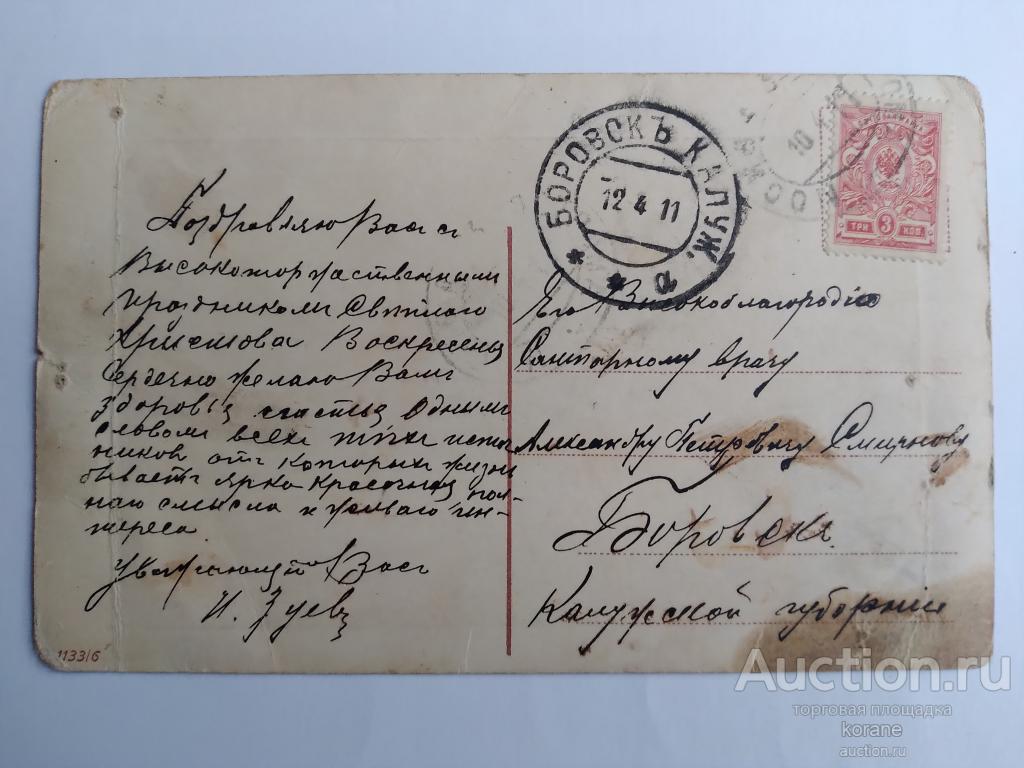 Поздравляю Васъ съ
Высокоторжественными
праздниками Свѣтлаго
Христова Воскресенія
Сердечно желаю Вамъ
здоровья счастья Однимъ
словомъ всехъ тѣхъ источ
никовъ отъ которыхъ жизнь
бываетъ ярко красочная пол-
ная смысла и живаго ин-
тереса.
Уважающій Васъ
И. Зуевъ
11331/6
БОРОВСКЪ КАЛУЖ.
12 4 11
а
10
ТРИ 3 КОП.
Его Высокоблагородію
Санитарному врачу
Александру Петровичу Смирнову
Боровскъ
Калужской губерніи
Auction.ru
торговая площадка
korane
auction.ru